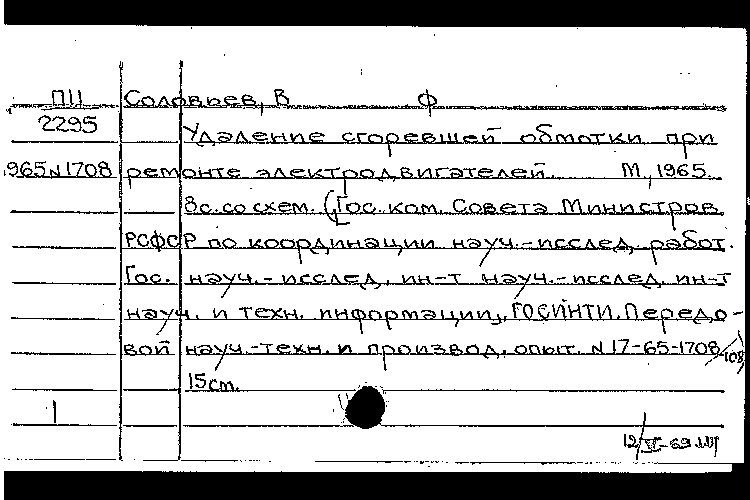 П11 Соловьев, В ф
2295 Удаление сгоревшей обмотки при
1965 N1708 ремонте электродвигателей. М, 1965.
8с. со схем. (Гос. ком. Совета Министров
РСФСР по координации науч.-исслед. работ.
Гос. науч.-исслед. ин-т науч.-исслед. ин-т
науч. и техн. информации, ГОСИНТИ. Передо-
вой науч.-техн. и производ. опыт. N 17-65-1708/108)
15см.
1
12/VI-69